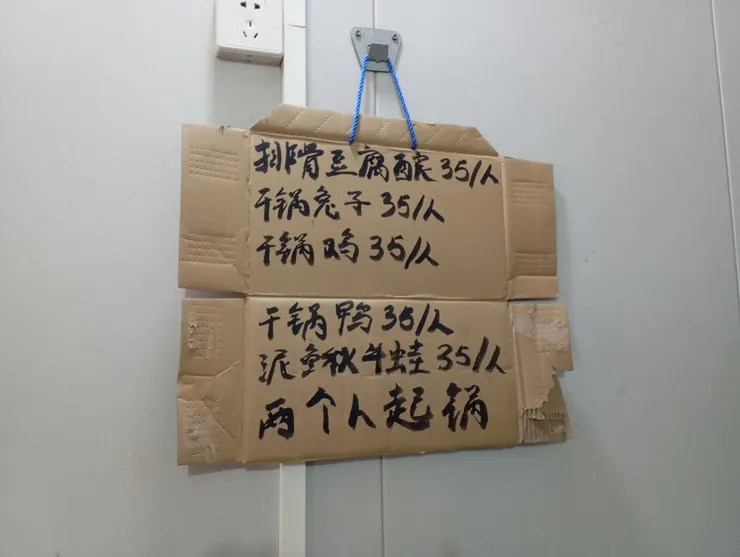 排骨豆腐酿35/人
干锅兔子35/人
干锅鸡35/人
干锅鸭35/人
泥鳅牛蛙35/人
两个人起锅